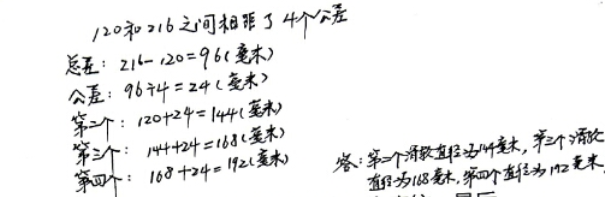 120和216之间相距了4个公差
总差：216-120=96(毫米)
公差：96÷4=24(毫米)
第二个：120+24=144(毫米)
第三个：144+24=168(毫米)
第四个：168+24=192(毫米)
答：第二个滑轮直径为144毫米，第三个滑轮
直径为168毫米，第四个直径为192毫米